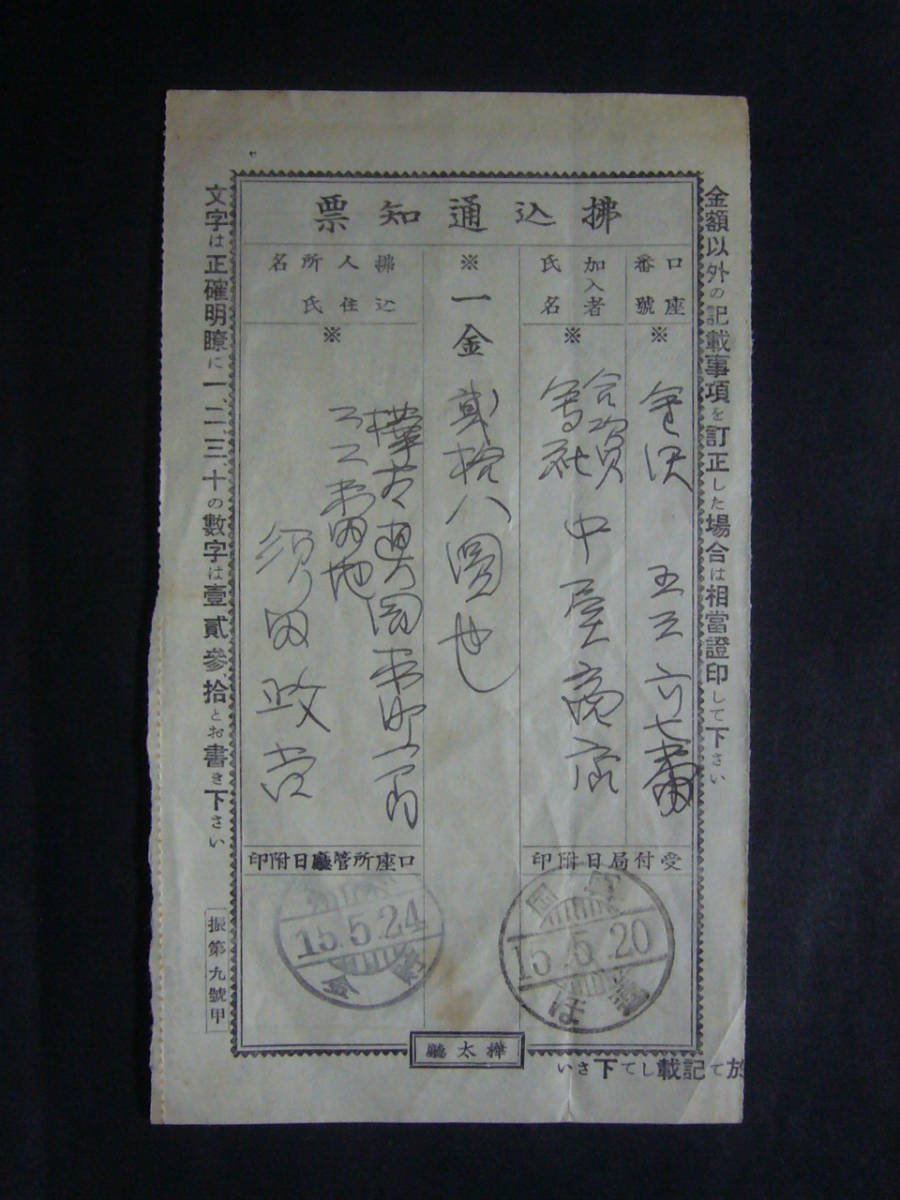 金額以外の記載事項を訂正した場合は相當證印して下さい
拂込通知票
口座番號
※
金沢 五五六七番
加入者氏名
※
合資會社 中屋商店
※
一金 貳拾八圓也
拂込人住所氏名
※
樺太豊
須田政吉
受付局日附印
15.5.20
口座所管廳日附印
15.5.24
樺太廳
文字は正確明瞭に一、二、三、十の數字は壹貳參拾とお書き下さい
振第九號甲
て記載して下さい